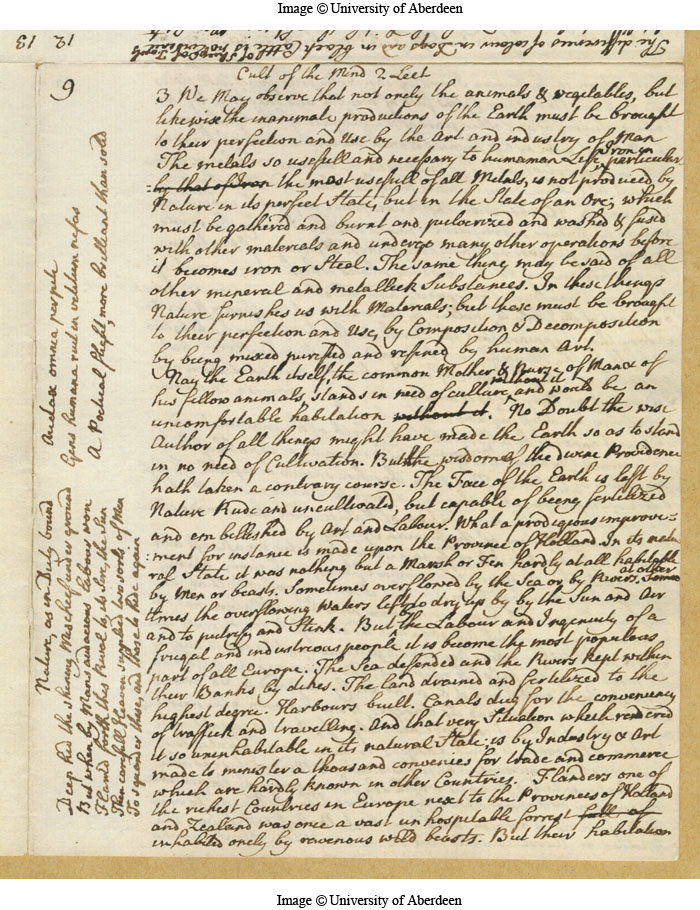 Image © University of Aberdeen
12 13
The difference of colour in Dogs and in black Cattle is
9
Cult of the Mind 2 Lect
3 We May observe that not onely the animals & vegetables, but
likewise the inanimate productions of the Earth must be brought
to their perfection and Use by the Art and industry of Man
The metals so usefull and necessary to humaman Life, Iron in particular
by that of Iron the most usefull of all Metals, is not produced by
Nature in its perfect State, but in the State of an Ore, which
must be gathered and burnt and pulverized and washed & fused
with other materials and undergo many other operations before
it becomes iron or Steel. The same thing may be said of all
other mineral and metallick Substances. In these things
Nature furnishes us with Materials; but these must be brought
to their perfection and Use, by Composition & Decomposition
by being mixed purified and refined by human Art.
Nay the Earth itself, the common Mother & Nurse of Man & of
his fellow animals, stands in need of culture, and without it would be an
uncomfortable habitation without it. No Doubt the wise
Author of all things might have made the Earth so as to stand
in no need of Cultivation. But the wisdom of the divine Providence
hath taken a contrary course. The Face of the Earth is left by
Nature Rude and uncultivated, but capable of being fertilized
and embellished by Art and Labour. What a prodigious improve-
ment for instance is made upon the Province of Holland. In its natu
ral State it was nothing but a Marsh or Fen hardly at all habitable
by Men or beasts. Sometimes overflowed by the Sea or by Rivers, at other
times the overflowing Waters left to dry up by by the Sun and Air
and to putrify and Stink. But by the Labour and Ingenuity of a
frugal and industreous people it is become the most populous
part of all Europe. The Sea defended and the Rivers kept within
their Banks by dikes. The land drained and fertilized to the
highest degree. Harbours built. Canals dug for the conveniency
of traffick and travelling. And that very Situation which rendered
it so uninhabitable in its natural State is by Industry & Art
made to minister a thousand convenies for trade and commerce
which are hardly known in other Countries. Flanders one of
the richest Countries in Europe next to the Provinces of Holland
and Zealand was once a vast unhospitable forrest full of
inhabited onely by ravenous wild beasts. But their habitation
Audax omnia perpeti
Gens humana ruit in vetitum nefas
A Poetical Theft, more brilliant than solid
Nature, as in Duty bound
Deep hid the shining Mischief under ground
But when by Mans audacious labour won
Flam'd forth this Rival to, its Sire, the Sun
Then carefull Heaven supplied two sorts of Men
To squander these, and those to hide again
Image © University of Aberdeen